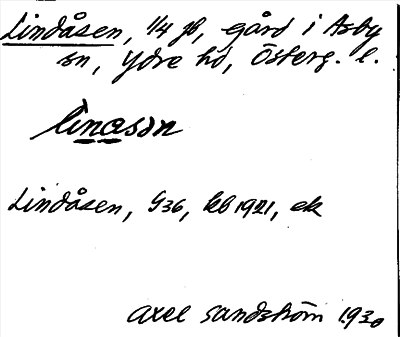 Lindåsen, 1/4 jb, gård i Asby
sn, Ydre hd, Österg. l.
linasɘn
Lindåsen, G36, kb 1921, ek
Axel Sandström 1930